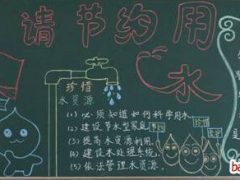 请节约用水
珍惜
水资源
(1)必须知道如何科学用水
(2)建设节水型家庭
(3)提高水资源利用
(4)建设水处理系统
(5)依法管理水资源